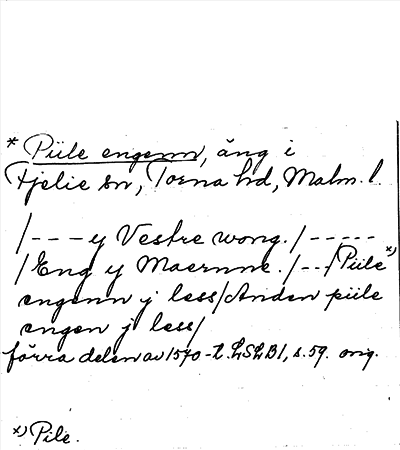 * Piile engenn, äng i
Fjelie sn, Torna hd, Malm. l.
/---y Vestre wong./-----
/Eng y Maernne./--/Piile x)
engenn j less/Anden piile
engen j less/
förra delen av 1570-t. LSLB1, s. 59. orig.
x) Pile.